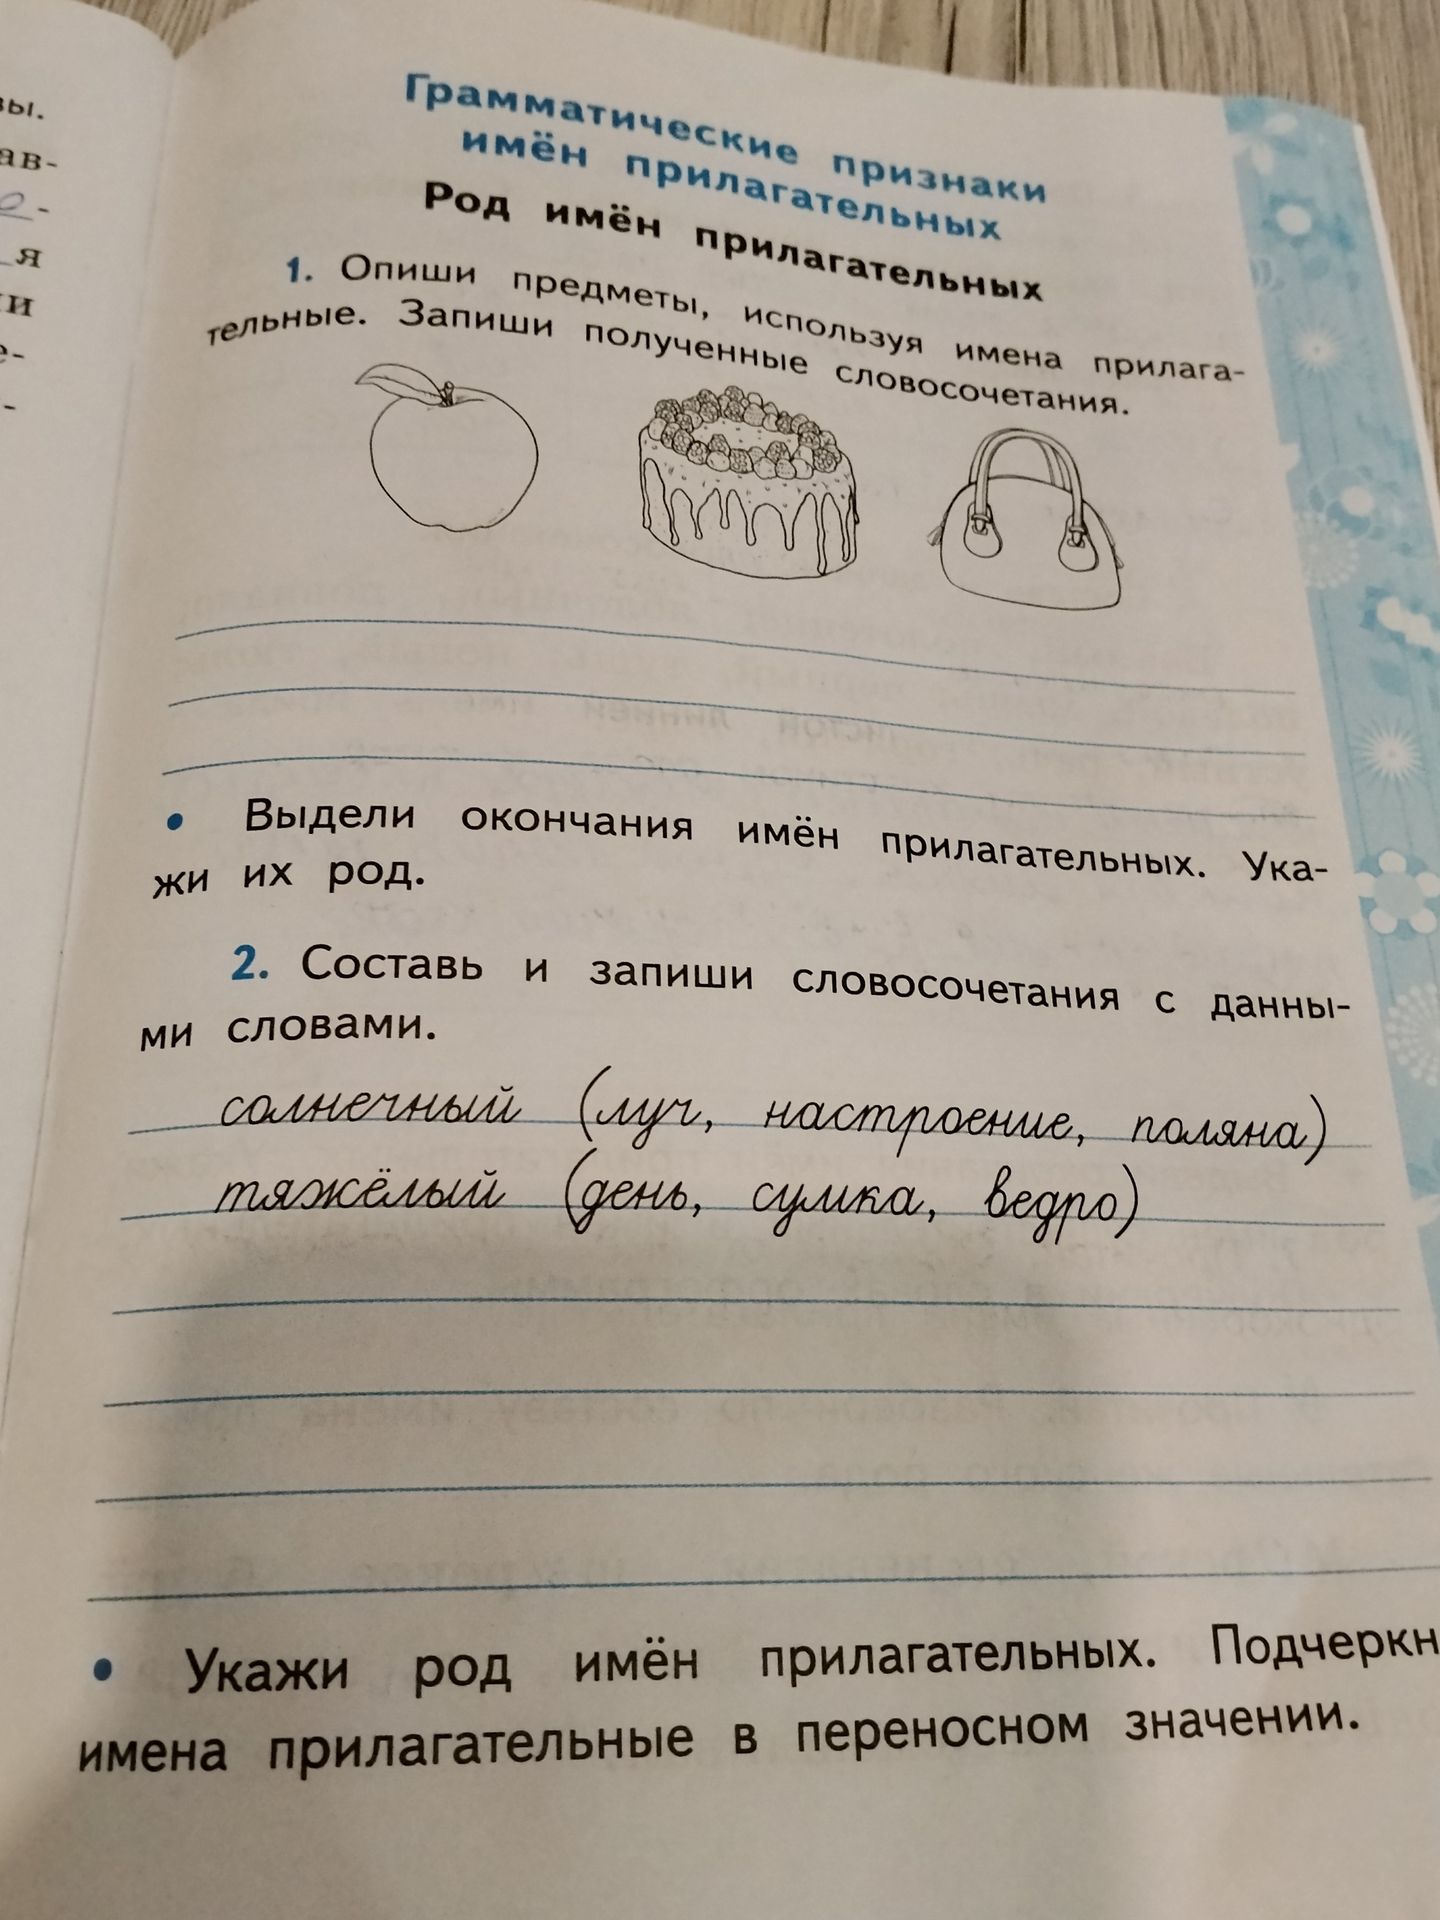 вы.
ав-
о-
я
и
е-
-
Грамматические признаки
имён прилагательных
Род имён прилагательных
1. Опиши предметы, используя имена прилага-
тельные. Запиши полученные словосочетания.
• Выдели окончания имён прилагательных. Ука-
жи их род.
2. Составь и запиши словосочетания с данны-
ми словами.
солнечный (луч, настроение, поляна)
тяжёлый (день, сумка, ведро)
• Укажи род имён прилагательных. Подчеркн
имена прилагательные в переносном значении.